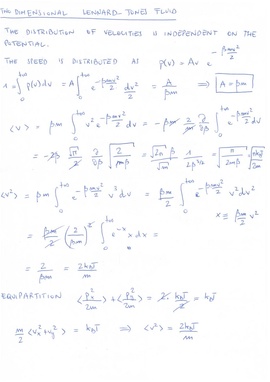 TWO DIMENSIONAL LENNARD-JONES FLUID
THE DISTRIBUTION OF VELOCITIES IS INDEPENDENT ON THE
POTENTIAL.
THE SPEED IS DISTRIBUTED AS p(v) = Av e^{-βmv²/2}
1 = ∫_0^{+∞} p(v)dv = A ∫_0^{+∞} e^{-βmv²/2} dv²/2 = A/βm ⇒ A = βm
<v> = βm ∫_0^{+∞} v² e^{-βmv²/2} dv = -βm 2/m ∂/∂β ∫_0^{+∞} e^{-βmv²/2} dv
<v²> = βm ∫_0^{+∞} e^{-βmv²/2} v³ dv = βm/2 ∫_0^{+∞} e^{-βmv²/2} v² dv²
x = βm/2 v²
= βm/2 (2/βm)² ∫_0^{+∞} e^{-x} x dx =
= 2/βm = 2k_BT/m
EQUIPARTITION <p_x²/2m> + <p_y²/2m> = 2· k_BT/2 = k_BT
m/2 <v_x² + v_y²> = k_BT ⇒ <v²> = 2k_BT/m